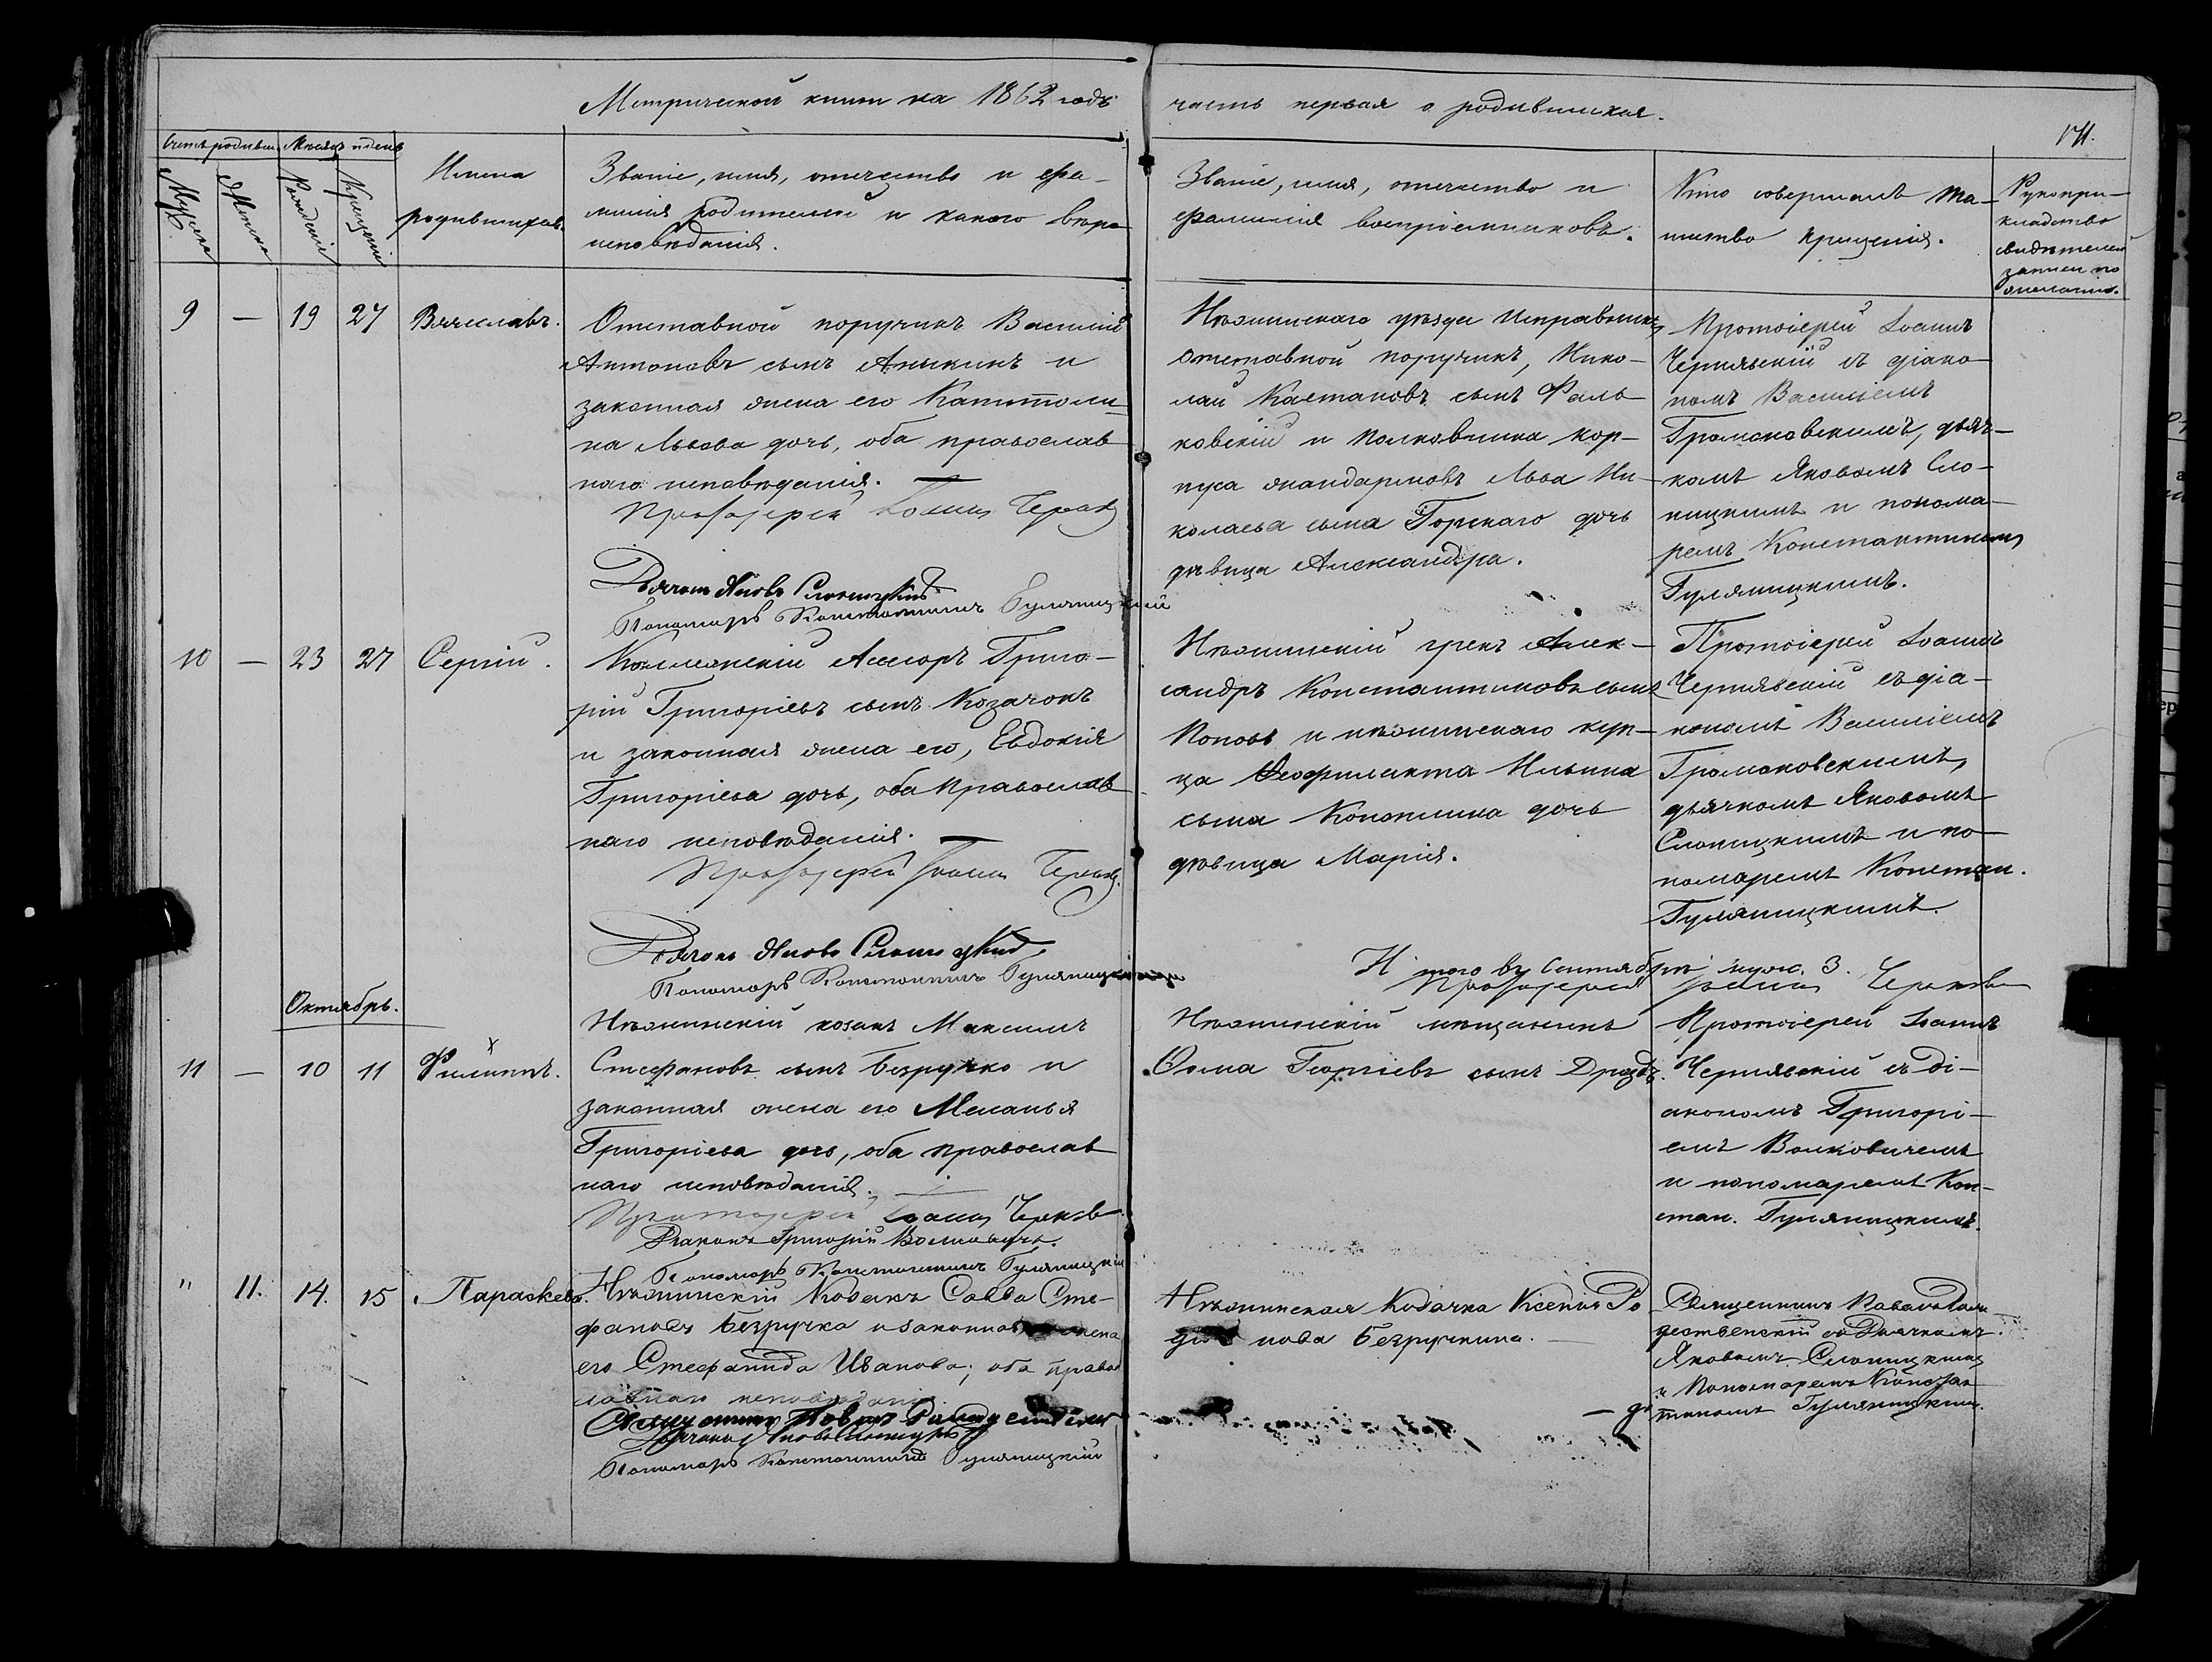 Метрической книги на 1862 годъ
часть первая о родившихся.
171.
Счетъ родивш. Мѣсяцъ и день
Мужеска
Женска
Рожденія
Крещенія
Имена
родившихся.
Званіе, имя, отчество и фа-
милія родителей и какого вѣро
исповѣданія.
Званіе, имя, отчество и
фамилія воспріемниковъ.
Кто совершалъ та-
инство крещенія.
Рукопри-
кладство
свидѣтелей
записи по
желанію.
9 — 19 27 Вячеславъ.
Отставной поручикъ Василій
Антоновъ сынъ Аникинъ и
законная жена его Капитоли-
на Львова дочь, оба православ
наго исповѣданія.
Протоіерей Іоаннъ
Дьячокъ Яковъ Слоницкій
Пономарь Константинъ Гуляницкій
Нѣжинскаго уѣзда Исправникъ,
отставной поручикъ, Нико-
лай Кастановъ сынъ Фаль
ковскій и полковника кор-
пуса жандармовъ Льва Ни-
колаева сына Горскаго дочь
дѣвица Александра.
Протоіерей Іоаннъ
Чернявскій съ діако-
номъ Василіемъ
Громаковскимъ, дьяч-
комъ Яковомъ Сло-
ницкимъ и понома-
ремъ Константиномъ
Гуляницкимъ.
10 — 23 27 Сергій.
Коллежскій Ассесоръ Григо-
рій Григоріевъ сынъ Козачокъ
и законная жена его, Евдокія
Григоріева дочь, оба православ
наго исповѣданія.
Протоіерей Іоаннъ
Дьячокъ Яковъ Слоницкій
Пономарь Константинъ Гуляницкій
Нѣжинскій грекъ Алек-
сандръ Константиновъ сынъ
Поповъ и нѣжинскаго куп-
ца Феофилакта Ильина
сына Коноплина дочь
дѣвица Марія.
Протоіерей Іоаннъ
Чернявскій съ діа-
кономъ Василіемъ
Громаковскимъ,
дьячкомъ Яковомъ
Слоницкимъ и по-
номаремъ Констан.
Гуляницкимъ.
Итого въ Сентябрѣ муж. 3.
Протоіерей Іоаннъ
Октябрь.
11 — 10 11 Филиппъ.
Нѣжинскій козакъ Максимъ
Стефановъ сынъ Безручко и
законная жена его Меланья
Григоріева дочь, оба православ
наго исповѣданія.
Протоіерей Іоаннъ
Діаконъ Григорій Волковичъ.
Пономарь Константинъ Гуляницкій
Нѣжинскій мѣщанинъ
Фома Георгіевъ сынъ Дроздъ.
Протоіерей Іоаннъ
Чернявскій съ ді-
акономъ Григорі-
емъ Волковичемъ
и пономаремъ Кон-
стан. Гуляницкимъ.
" 11. 14. 15 Параскева.
Нѣжинскій Козакъ Савва Сте-
фановъ Безручко и законная жена
его Стефанида Иванова; оба право
славнаго исповѣданія.
Священникъ Павелъ Рождественскій
Дьячокъ Яковъ Слоницкій
Пономарь Константинъ Гуляницкій
Нѣжинская Козачка Ксенія Ро
нова Безручкина.
Священникъ Павелъ Рож
дественскій со Дьячкомъ
Яковомъ Слоницкимъ
и Пономаремъ Констан
тиномъ Гуляницкимъ.